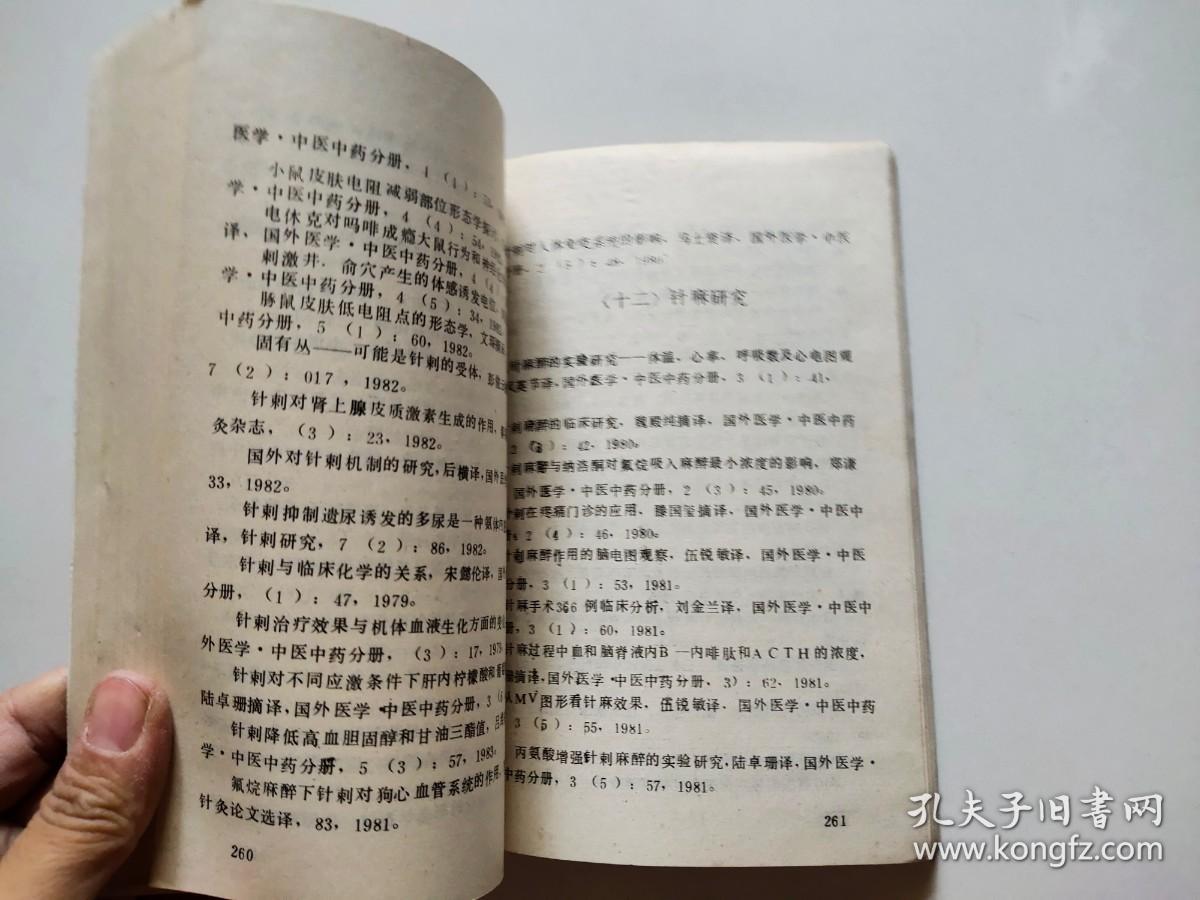 医学·中医中药分册，4（4）：
小鼠皮肤电阻减弱部位形态学
学·中医中药分册，4（4）：54，
电休克对吗啡成瘾大鼠行为和神经
译，国外医学·中医中药分册，4（4）
刺激井、俞穴产生的体感诱发电位，
学·中医中药分册，4（5）：34，1982
豚鼠皮肤低电阻点的形态学，文琛
中药分册，5（1）：60，1982。
固有丛——可能是针刺的受体，彭
7（2）：017，1982。
针刺对肾上腺皮质激素生成的作用，
灸杂志，（3）：23，1982。
国外对针刺机制的研究，后横译，国外
33，1982。
针刺抑制遗尿诱发的多尿是一种氨
译，针刺研究，7（2）：86，1982。
针刺与临床化学的关系，宋懿伦译，
分册，（1）：47，1979。
针刺治疗效果与机体血液生化方面的
外医学·中医中药分册，（3）：17，
针刺对不同应激条件下肝内柠檬酸和
陆卓珊摘译，国外医学·中医中药分册，3
针刺降低高血胆固醇和甘油三酯值，
学·中医中药分册，5（3）：57，1983。
氟烷麻醉下针刺对狗心血管系统的作用，
针灸论文选译，83，1981。
260
人体免疫系统的影响，马士贤译，国外医学·中医
册，2（3）：48，1980
（十二）针麻研究
针麻醉的实验研究——体温、心率、呼吸数及心电图观
译，国外医学·中医中药分册，3（1）：41，
刺麻醉的临床研究，魏殿纯摘译，国外医学·中医中药
2（3）：42，1980。
刺麻醉与纳洛酮对氟烷吸入麻醉最小浓度的影响，郑谦
国外医学·中医中药分册，2（3）：45，1980。
针刺在疼痛门诊的应用，滕国玺摘译，国外医学·中医中
2（4）：46，1980。
针刺麻醉作用的脑电图观察，伍锐敏译，国外医学·中医
分册，3（1）：53，1981。
针麻手术366例临床分析，刘金兰译，国外医学·中医中
册，3（1）：60，1981。
针麻过程中血和脑脊液内B—内啡肽和ACTH的浓度，
摘译，国外医学·中医中药分册，3）：62，1981。
MV图形看针麻效果，伍锐敏译，国外医学·中医中药
3（5）：55，1981。
丙氨酸增强针刺麻醉的实验研究，陆卓珊译，国外医学·
中药分册，3（5）：57，1981。
261
孔夫子旧书网
www.kongfz.com